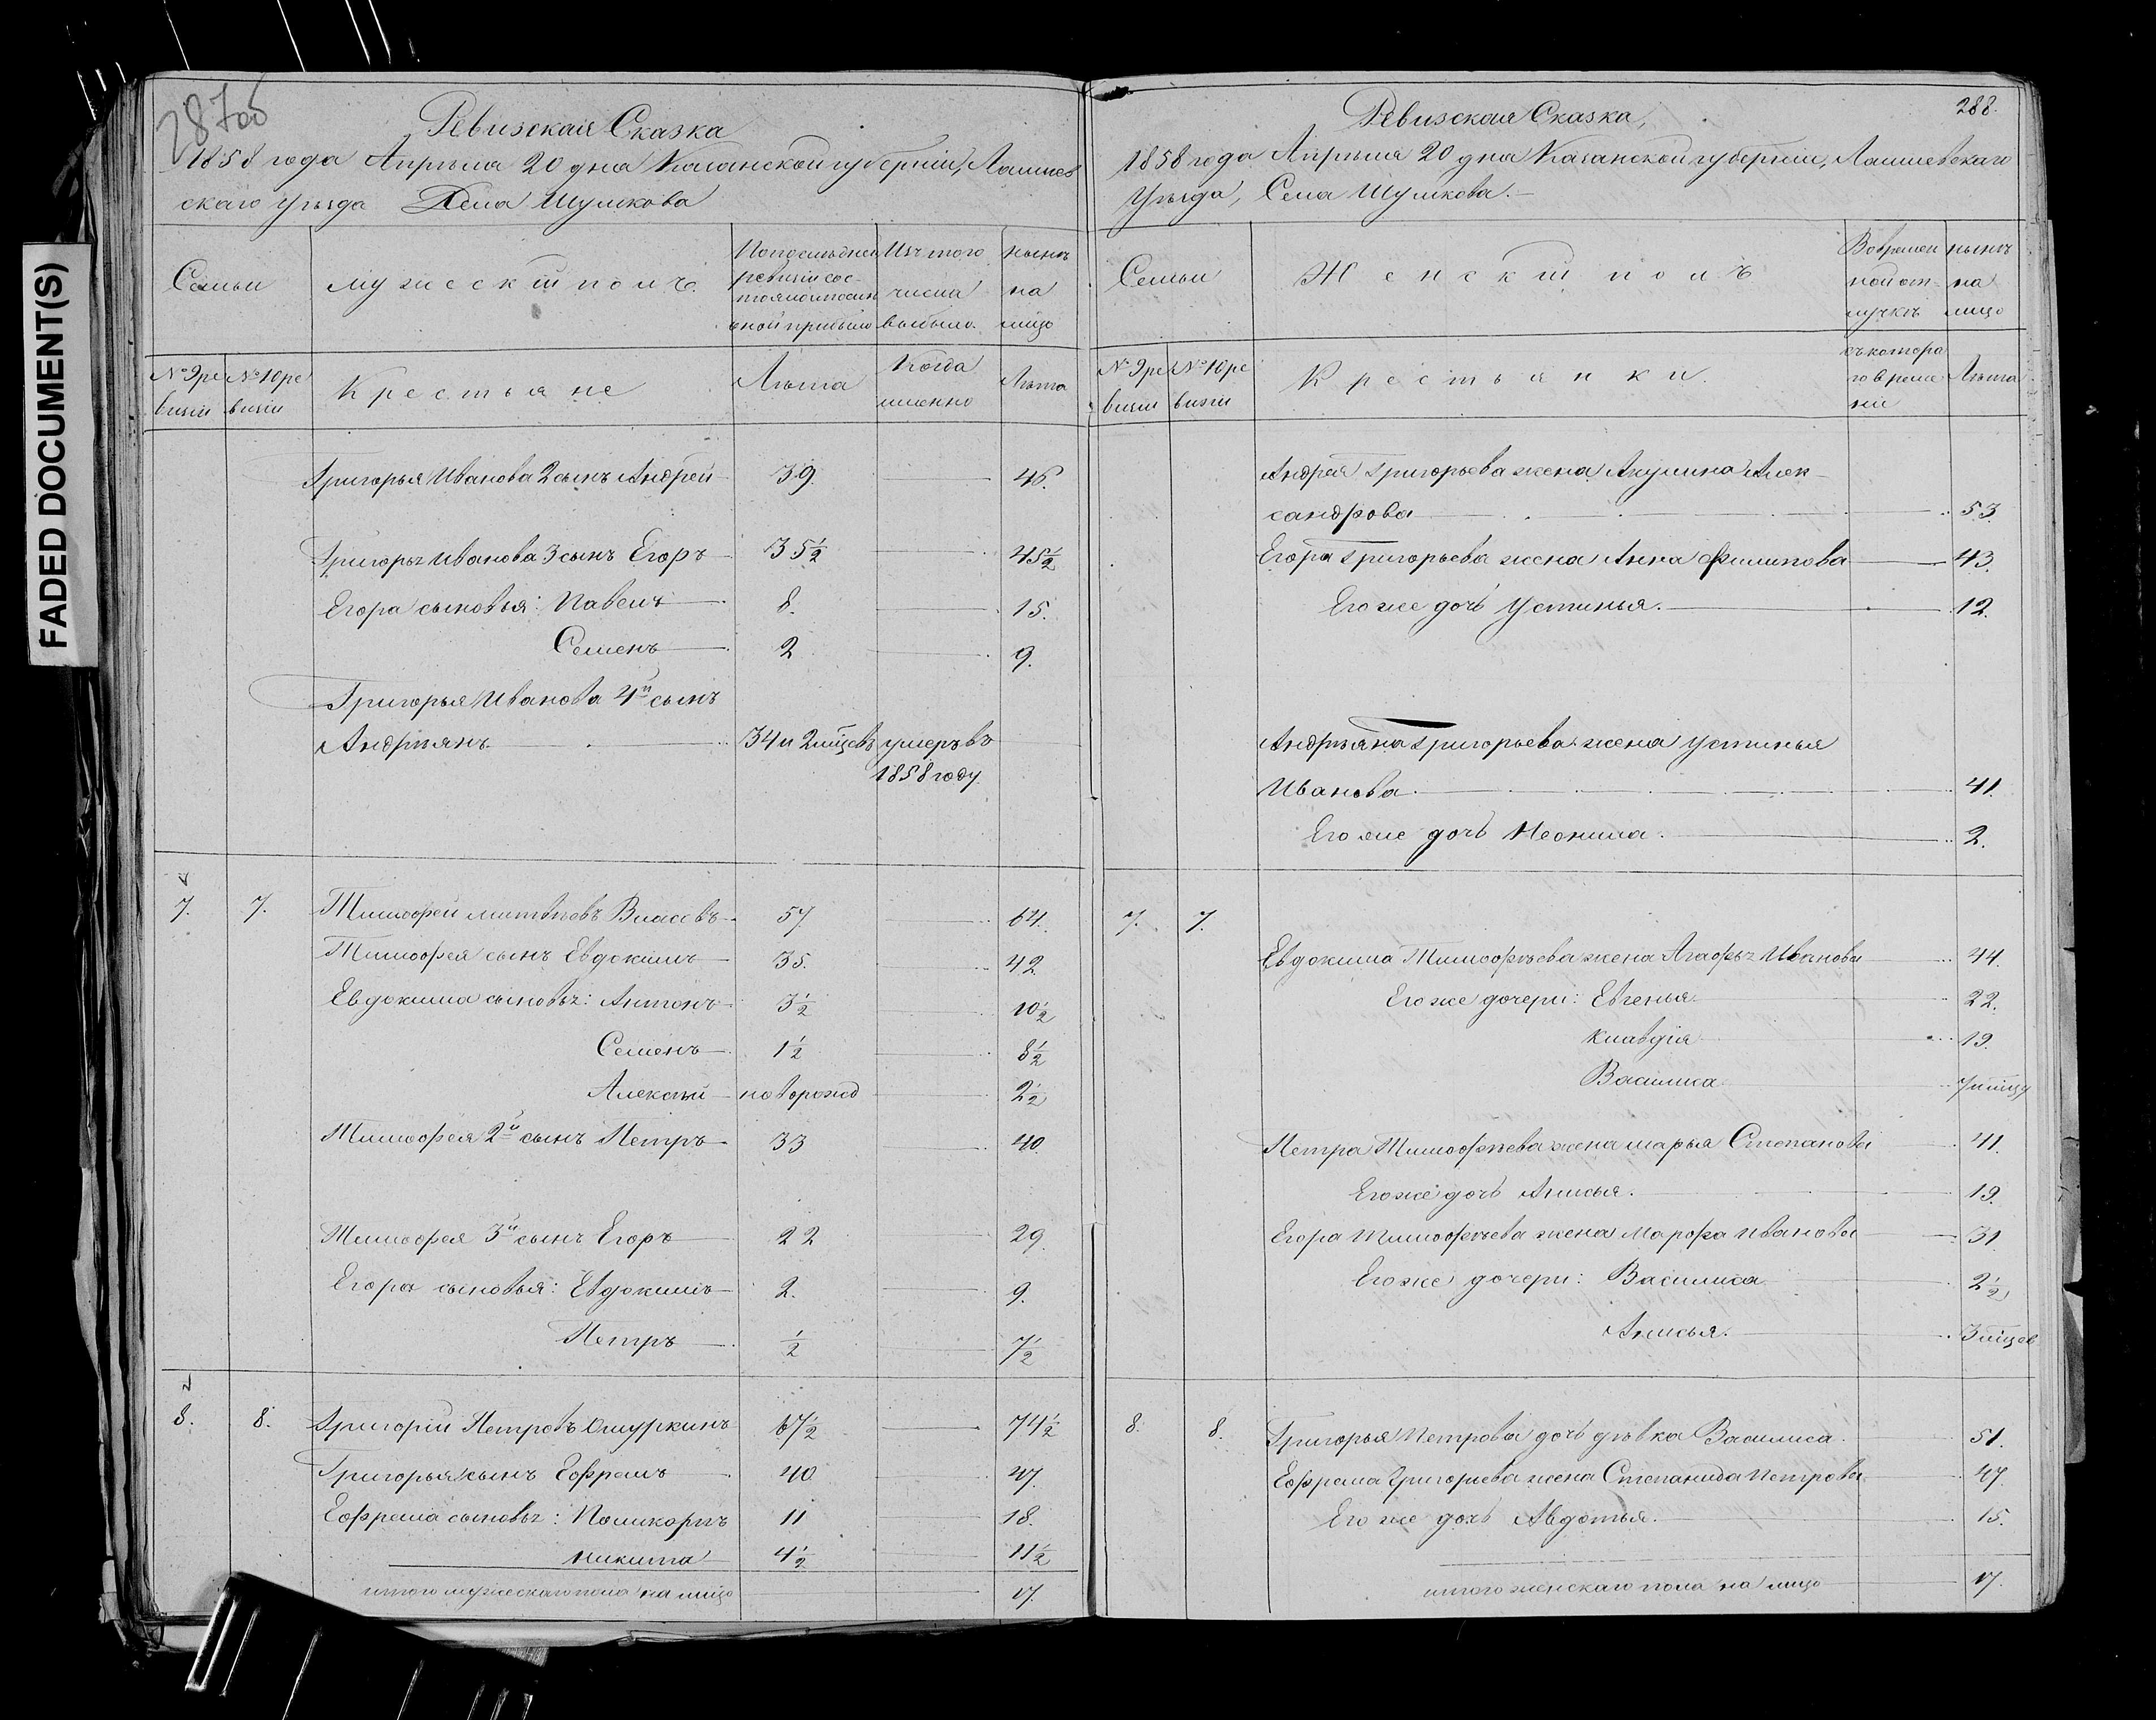 FADED DOCUMENT(S)
287об
Ревизская Сказка
1858 года Апрѣля 20 дня Казанской губерніи, Лаишев
скаго уѣзда Села Шумкова
Семьи
мужескій полъ.
По последней
ревизіи сос-
Изъ того
числа
выбыло.
нынѣ
на
лицо
№ 9 ре
визіи
№ 10 ре
визіи
Крестьяне
Лѣта
Когда
именно
Лѣта
Григорья Иванова 2 сынъ Андрей 39. 46.
Григорья Иванова 3 сынъ Егоръ 35½ 45½
Егора сыновья: Павелъ 8. 15.
Семенъ 2 9.
Григорья Иванова 4й сынъ
Андріянъ 34 и 2 мцевъ умеръ въ
1858 году
7. 7. Тимофей Матвѣевъ Власовъ 57. 64.
Тимофея сынъ Евдокимъ 35. 42
Евдокима сыновья: Антонъ 3½ 10½
Семенъ 1½ 8½
Алексѣй новорожд 2½
Тимофея 2й сынъ Петръ 33 40.
Тимофея 3й сынъ Егоръ 22 29.
Егора сыновья: Евдокимъ 2. 9.
Петръ ½ 7½
8. 8. Григорій Петровъ Ошуркинъ 67½ 74½
Григорья сынъ Ефремъ 40 47.
Ефрема сыновья: Поликарпъ 11 18.
Никита 4½ 11½
итого мужескаго пола на лицо 17.
288.
Ревизская Сказка,
1858 года Апрѣля 20 дня Казанской губерніи, Лаишевскаго
Уѣзда, Села Шумкова.
Семьи
Женскій полъ
Во времен
ной от-
лучкѣ
нынѣ
на
лицо
№ 9 ре
визіи
№ 10 ре
визіи
Крестьянки.
съ котора
го време
ни
Лѣта
Андрея Григорьева жена Акулина Алек-
сандрова 53.
Егора Григорьева жена Анна Филипова 43.
Его же дочь Устинья. 12.
Андріяна Григорьева жена Устинья
Иванова. 41.
Его же дочь Неонила. 2.
7. 7.
Евдокима Тимофѣева жена Агафья Иванова 44.
Его же дочери: Евгенья 22.
Клавдія 19.
Василиса
Петра Тимофѣева жена Марья Степанова 41.
Его же дочь Анисья. 19.
Егора Тимофѣева жена Марфа Иванова 31
Его же дочери: Василиса 2½
Анисья. 3 мцев
8. 8. Григорья Петрова дочь дѣвка Василиса. 51.
Ефрема Григорьева жена Степанида Петрова 47.
Его же дочь Авдотья. 15.
итого женскаго пола на лицо 17.